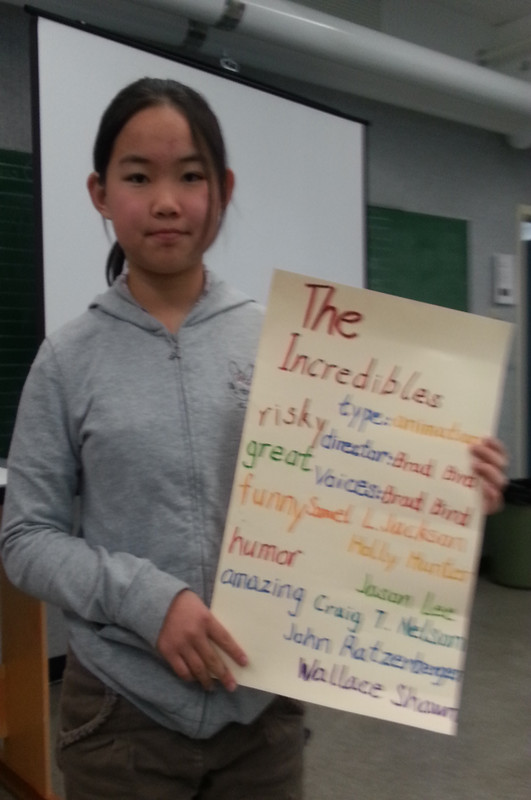 The
Incredibles
type: animation
risky director: Brad Bird
great Voices: Brad Bird
funny Samel L. Jackson
Holly Hunter
humor Jason Lee
amazing Craig T. Nelson
John Ratzenberger
Wallace Shawn